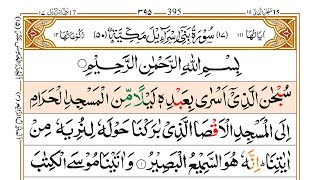 ٣٩٥ 395
اٰيَاتُهَا ١١١ (١٧) سُوْرَةُ بَنِيْٓ اِسْرَآءِيْلَ مَكِّيَّةٌ (٥٠) رُكُوْعَاتُهَا ١٢
بِسْمِ اللّٰهِ الرَّحْمٰنِ الرَّحِيْمِ
سُبْحٰنَ الَّذِيْٓ اَسْرٰى بِعَبْدِهٖ لَيْلًا مِّنَ الْمَسْجِدِ الْحَرَامِ
اِلَى الْمَسْجِدِ الْاَقْصَا الَّذِيْ بٰرَكْنَا حَوْلَهٗ لِنُرِيَهٗ مِنْ
اٰيٰتِنَا ؕ اِنَّهٗ هُوَ السَّمِيْعُ الْبَصِيْرُ ۝١ وَاٰتَيْنَا مُوْسَى الْكِتٰبَ